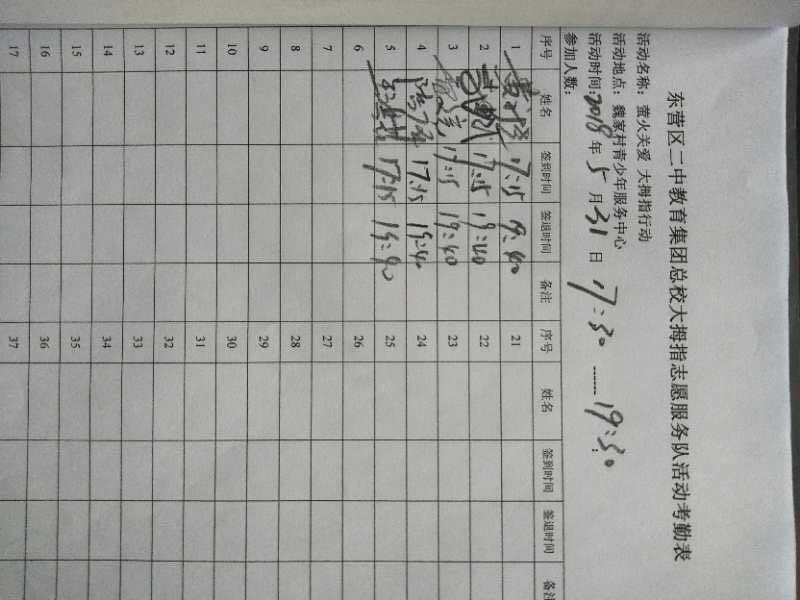 东营区二中教育集团总校大拇指志愿服务队活动考勤表
活动名称：萤火关爱 大拇指行动
活动地点：魏家村青少年服务中心
活动时间：2018年5月31日 17:30 —— 19:30
参加人数：
序号 姓名 签到时间 签退时间 备注 序号 姓名 签到时间 签退时间 备注
1 17:15 19:40 21
2 17:15 19:40 22
3 17:15 19:40 23
4 17:15 19:40 24
5 17:15 19:40 25
6 26
7 27
8 28
9 29
10 30
11 31
12 32
13 33
14 34
15 35
16 36
17 37